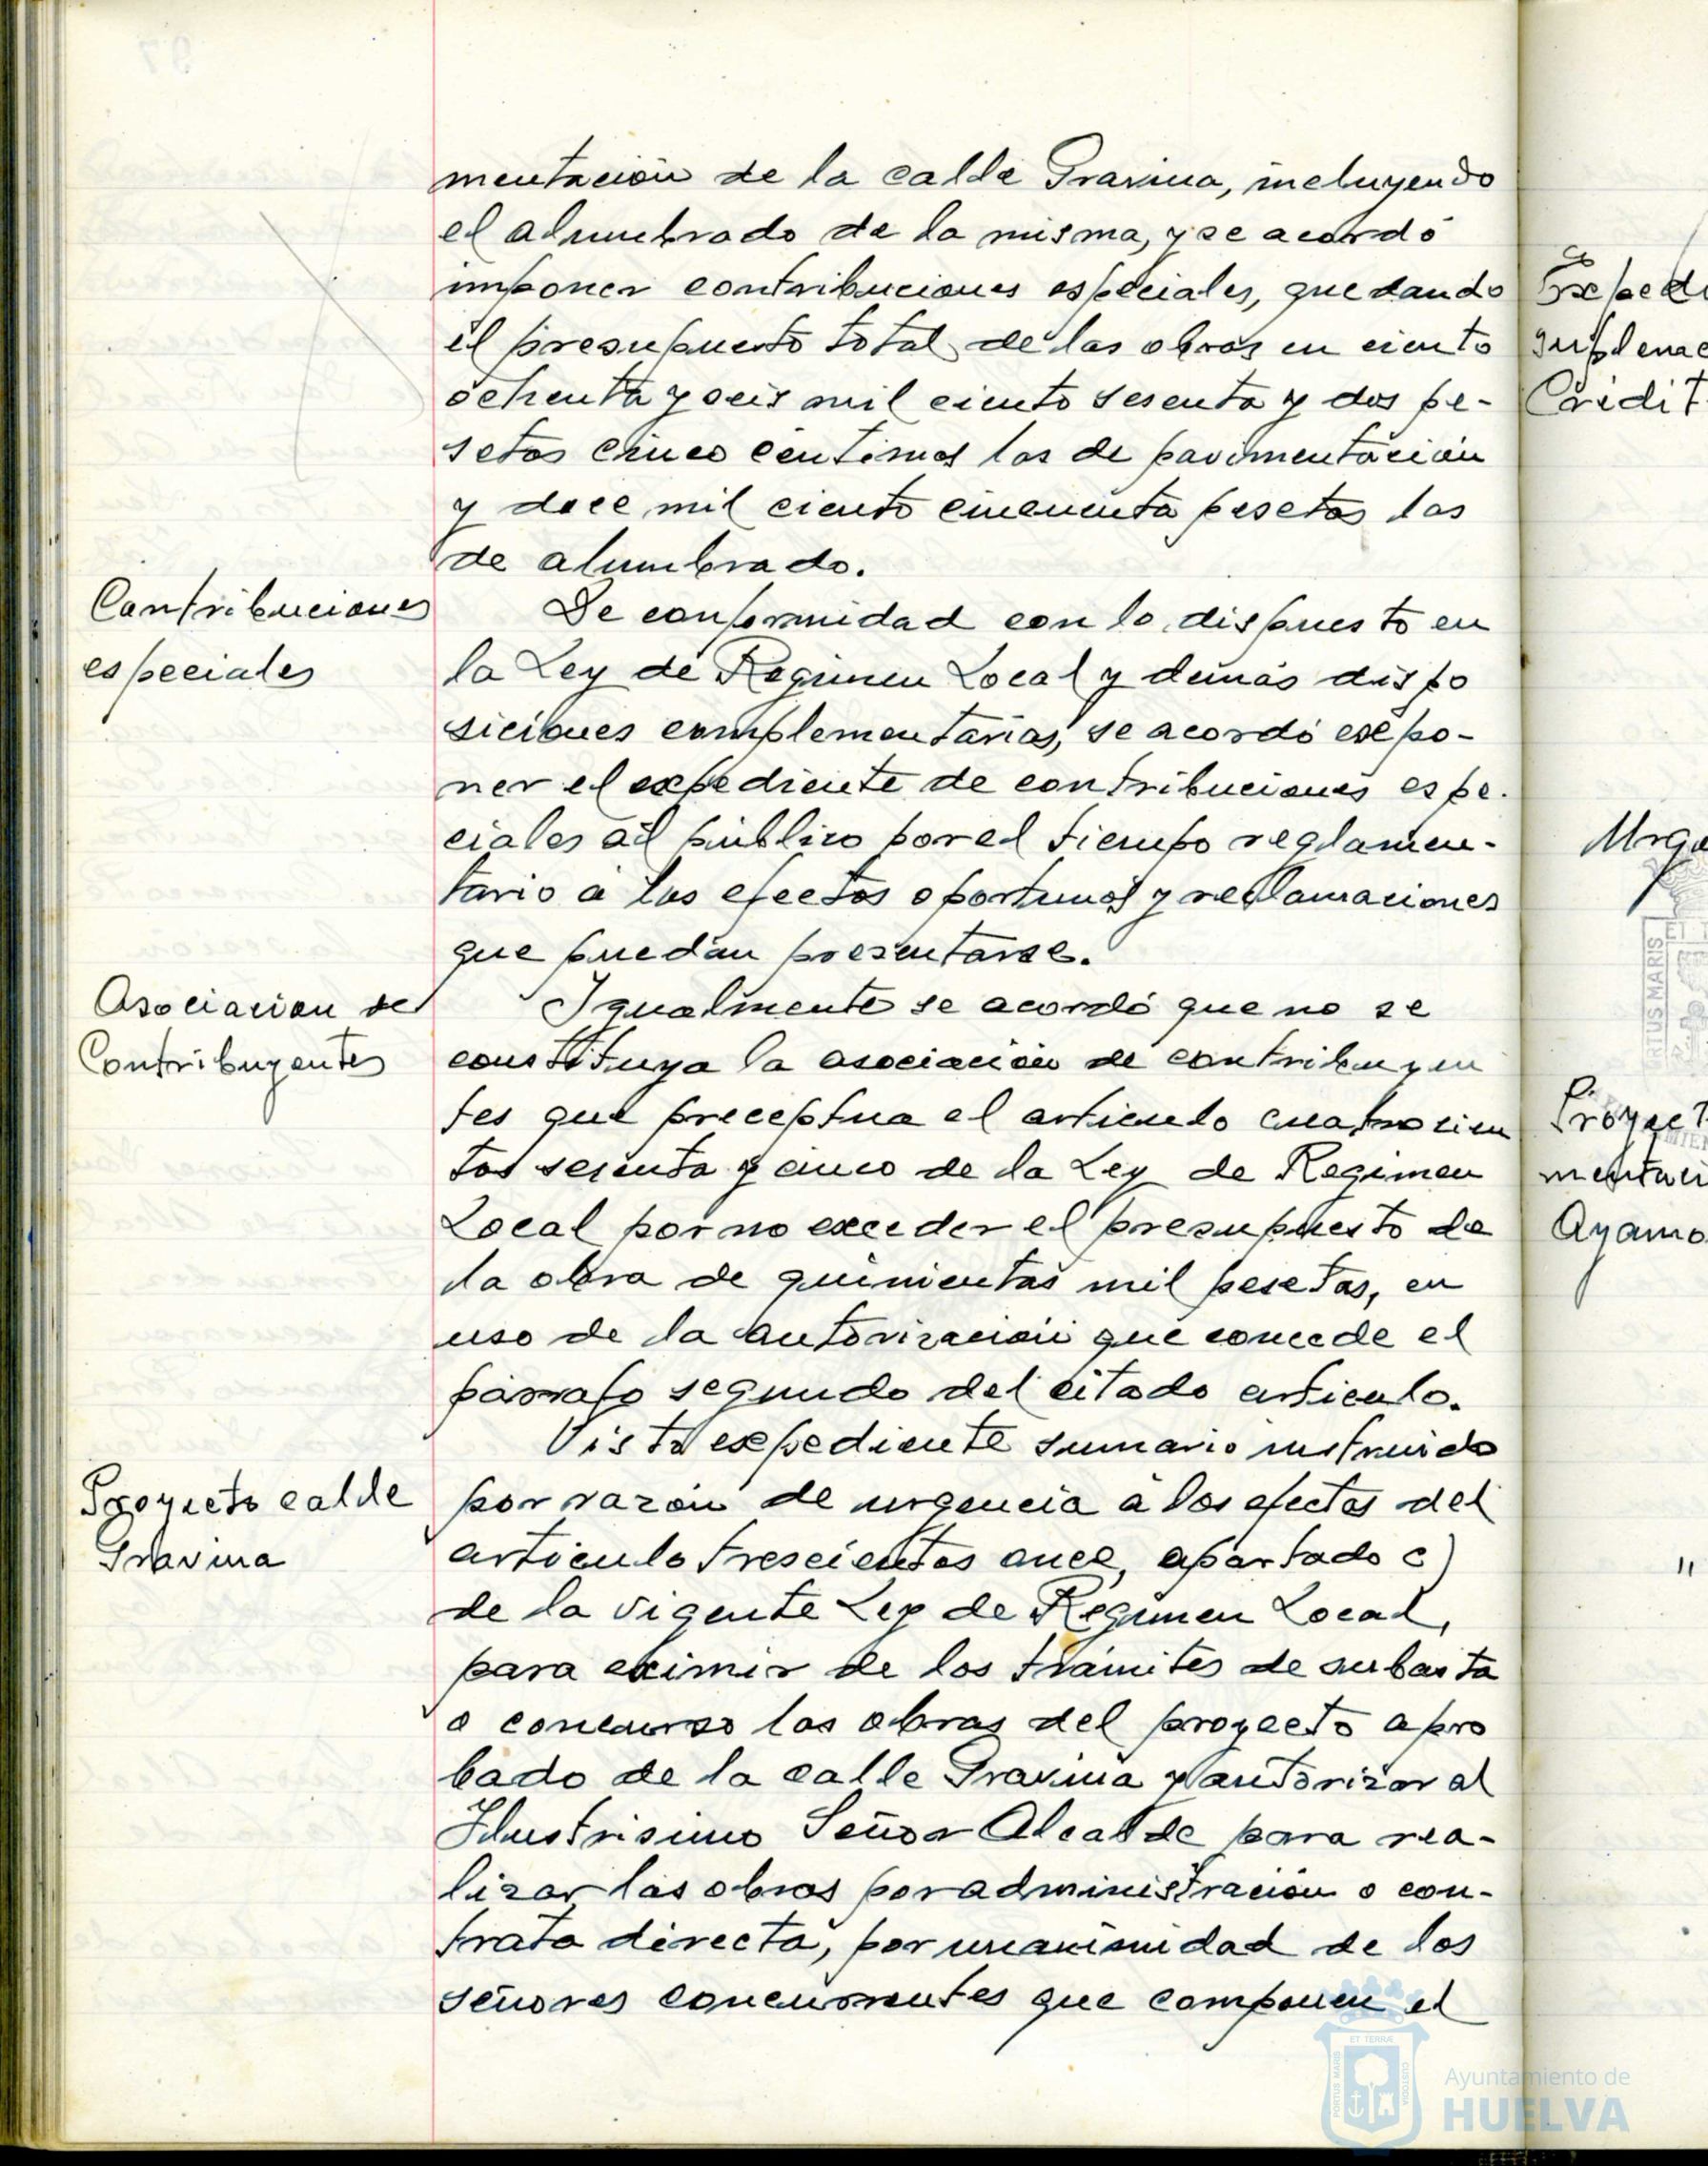 mentación de la calle Gravina, incluyendo
el alumbrado de la misma, y se acordó
imponer contribuciones especiales, quedando
el presupuesto total de las obras en ciento
ochenta y seis mil ciento sesenta y dos pe-
setas cinco centimos las de pavimentación
y doce mil ciento cincuenta pesetas las
de alumbrado.
Contribuciones
especiales
De conformidad con lo dispuesto en
la Ley de Regimen Local y demás dispo
siciones complementarias, se acordó expo-
ner el expediente de contribuciones espe-
ciales al público por el tiempo reglamen-
tario a los efectos oportunos y reclamaciones
que puedan presentarse.
Asociacion de
Contribuyentes
Igualmente se acordó que no se
constituya la asociación de contribuyen
tes que preceptua el articulo cuatrocien
tos sesenta y cinco de la Ley de Regimen
Local por no exceder el presupuesto de
la obra de quinientas mil pesetas, en
uso de la autorización que concede el
párrafo segundo del citado articulo.
Proyecto calle
Gravina
Visto expediente sumario instruido
por razón de urgencia a los efectos del
articulo trescientos once, apartado c)
de la vigente Ley de Regimen Local,
para eximir de los trámites de subasta
o concurso las obras del proyecto apro
bado de la calle Gravina y autorizar al
Ilustrisimo Señor Alcalde para rea-
lizar las obras por administración o con-
trata directa, por unanimidad de los
señores concurrentes que componen el
Expedi
suplemac
Crédit
Urge
ET T
PORTUS MARIS
Proyect
mentaci
Ayamo
"
ET TERRÆ
PORTUS MARIS
CUSTODIA
Ayuntamiento de
HUELVA